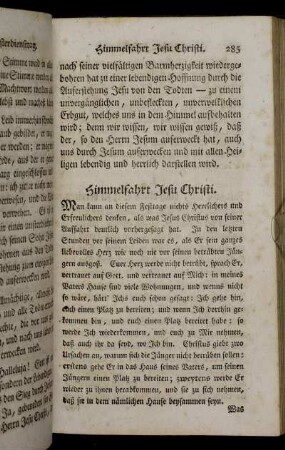 Himmelfahrt Jesu Christi. 285
nach seiner vielfältigen Barmherzigkeit wiederge-
bohren hat zu einer lebendigen Hoffnung durch die
Auferstehung Jesu von den Todten — zu einem
unvergänglichen, unbefleckten, unverwelklichen
Erbgut, welches uns in dem Himmel aufbehalten
wird; denn wir wissen, wir wissen gewiß, daß
der, so den Herrn Jesum auferweckt hat, auch
uns durch Jesum auferwecken und mit allen Heili-
gen lebendig und herrlich darstellen wird.
Himmelfahrt Jesu Christi.
Man kann an diesem Festtage nichts Herrlichers und
Erfreulichers denken, als was Jesus Christus von seiner
Auffahrt deutlich vorhergesagt hat. In den letzten
Stunden vor seinem Leiden war es, als Er sein ganzes
liebevolles Herz wie noch nie vor seinen betrübten Jün-
gern ausgoß. Euer Herz werde nicht betrübt, sprach Er,
vertrauet auf Gott, und vertrauet auf Mich: in meines
Vaters Hause sind viele Wohnungen, und wanns nicht
so wäre, hätt' Ichs euch schon gesagt: Ich gehe hin,
euch einen Platz zu bereiten; und wann Ich dorthin ge-
kommen bin, und euch einen Platz bereitet habe: so
werde Ich wiederkommen, und euch zu Mir nehmen,
daß auch ihr da seyd, wo Ich bin. Christus giebt zwo
Ursachen an, warum sich die Jünger nicht betrüben sollen:
erstens gehe Er in das Haus seines Vaters, um seinen
Jüngern einen Platz zu bereiten; zweytens werde Er
wieder zu ihnen herabkommen, und sie zu sich nehmen,
daß sie in dem nämlichen Hause beysammen seyn.
Was